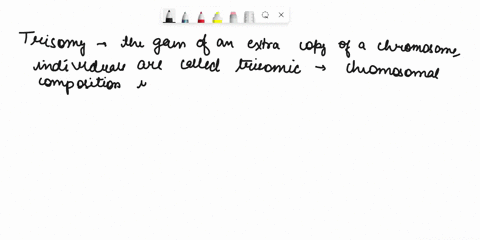 Trisomy → the gain of an extra copy of a chromosome,
individuals are called trisomic → chromosomal
composition